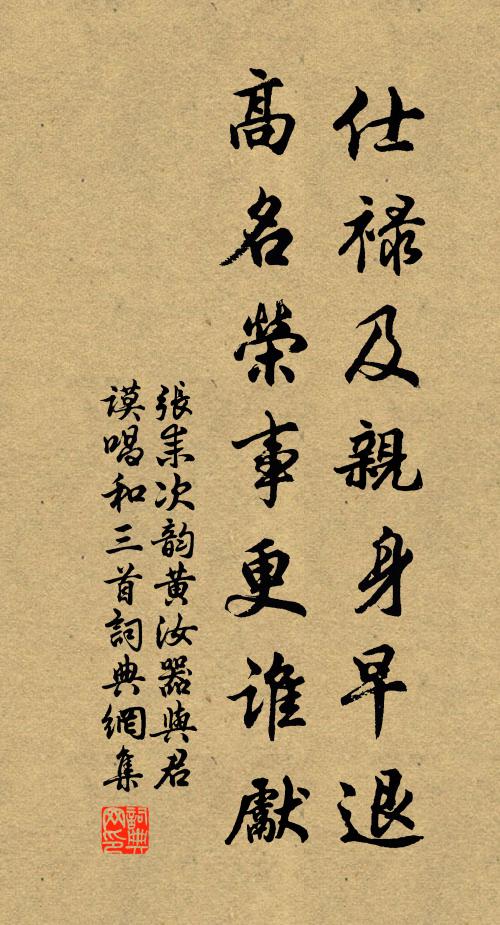 仕禄及親身早退
髙名榮事更誰獻
張耒次韵黄汝器與君
謨唱和三首詞典網集
詞典
网印